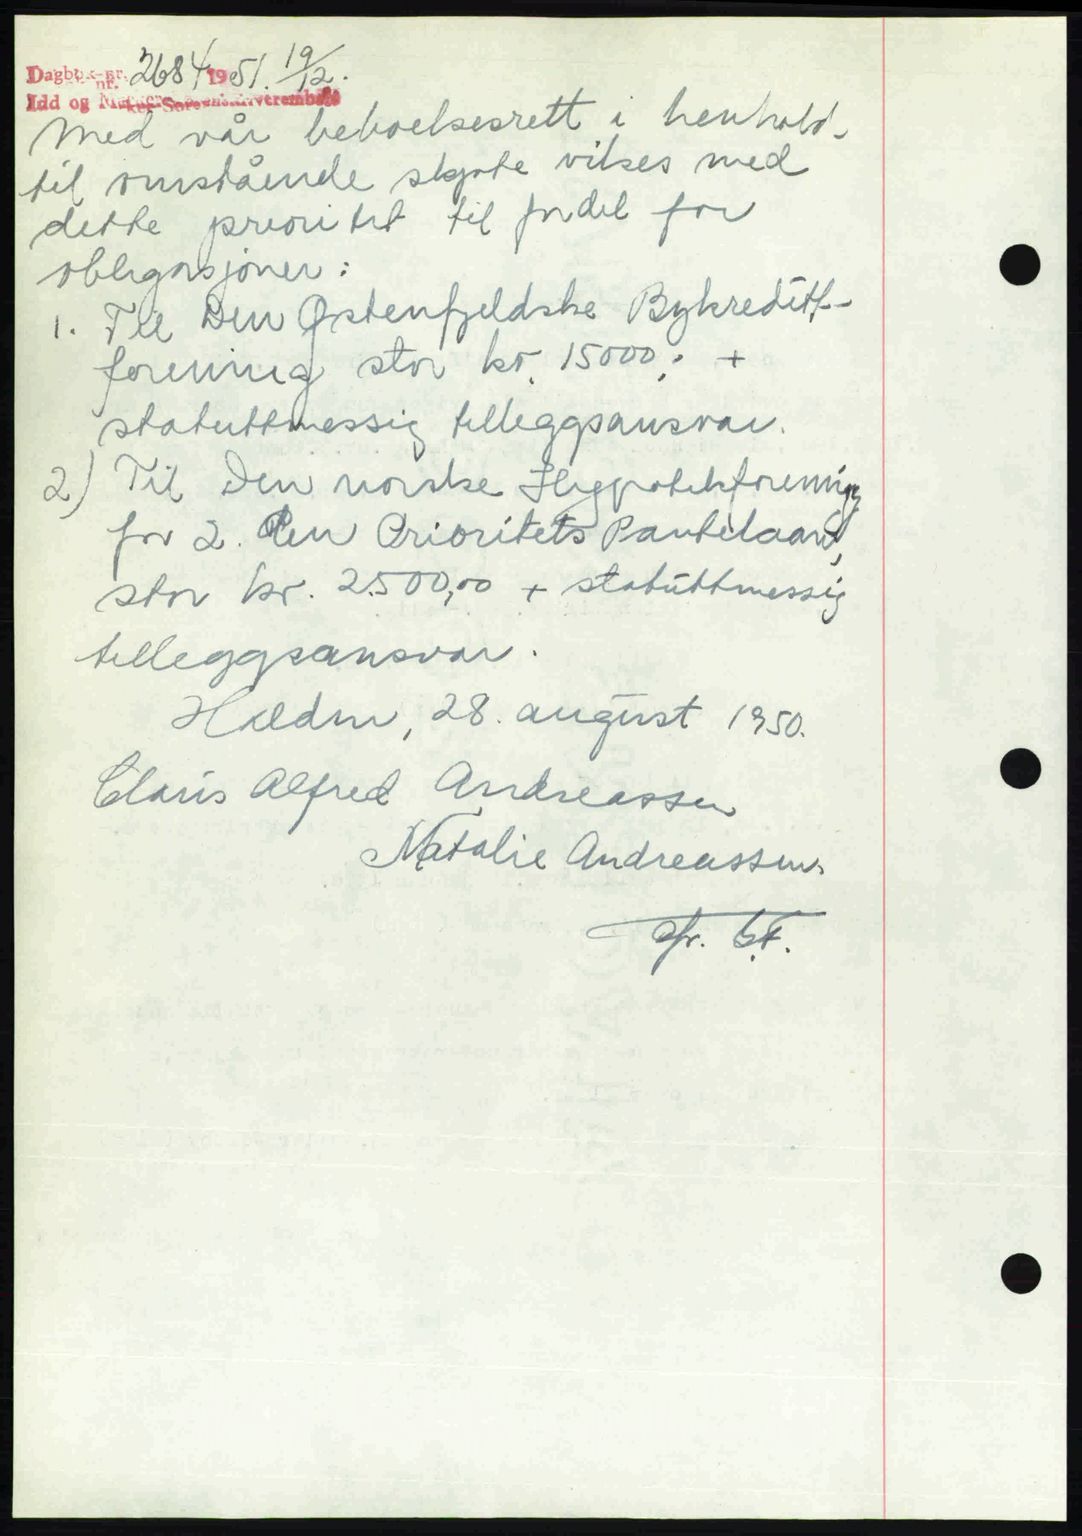 Dagbok-nr. 2684 1951. 19/12.
Idd og Marker Sorenskriverembede
Med vår beboelsesrett i henhold
til omstående skjøte vikes med
dette prioritet til fordel for
obligasjoner:
1. Til Den Østenfjeldske Bykreditt-
forening stor kr. 15000,- +
statuttmessig tilleggsansvar.
2) Til Den norske Hypotekforening
for 2. den Prioritets Pantelaan,
stor kr. 2500,00 + statuttmessig
tilleggsansvar.
Halden, 28. august 1950.
Claus Alfred Andreassen
Natalie Andreassen